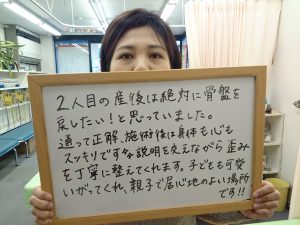 2人目の産後は絶対に骨盤を
戻したい!と思っていました。
通って正解、施術後は身体も心も
スッキリです♪説明も交えながら歪み
を丁寧に整えてくれます。子どもも可愛
いがってくれ、親子で居心地のよい場所
です!!